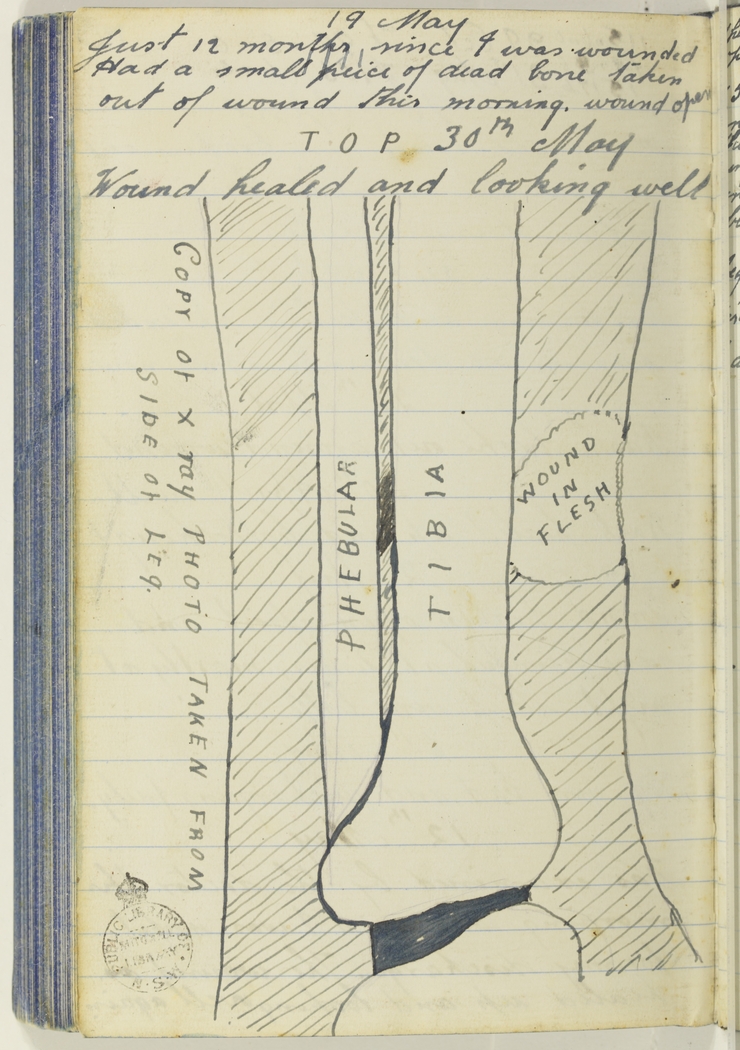 19 May
Just 12 months, since I was wounded
Had a small peice of dead bone taken
out of wound this morning. wound open
TOP 30th May
Wound healed and looking well
COPY of X ray PHOTO TAKEN FROM
SIDE of LEG.
PHEBULAR
TIBIA
WOUND
IN
FLESH
PUBLIC LIBRARY OF N.S.W.
MITCHELL
LIBRARY